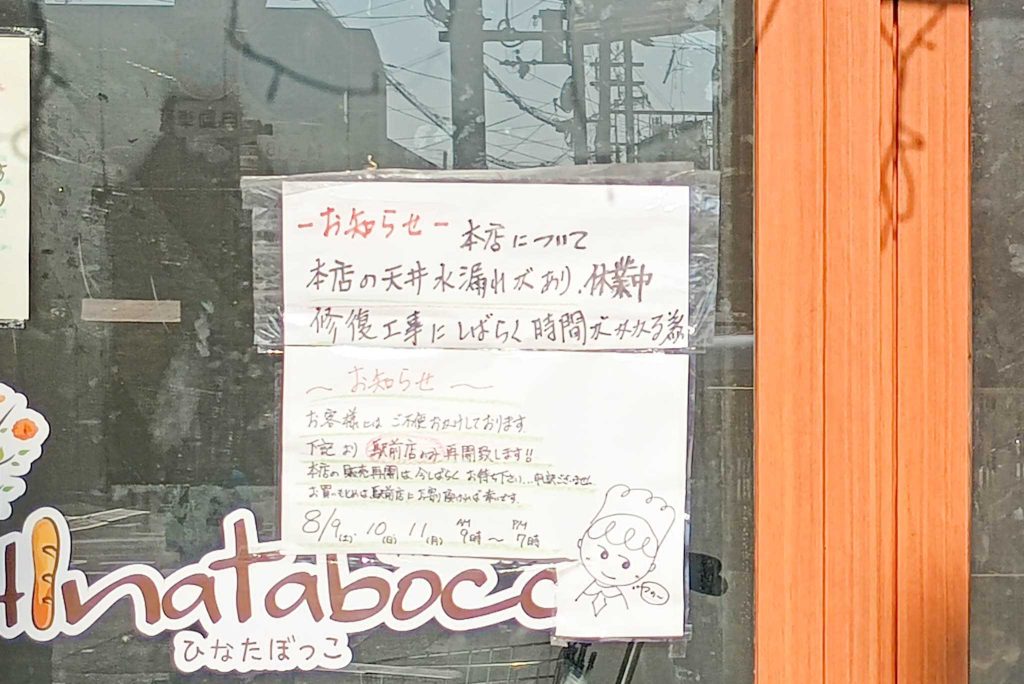 -お知らせ-
本店について
本店の天井水漏れがあり、休業中
修復工事にしばらく時間がかかる為
～お知らせ～
お客様にはご不便おかけしております
下記より駅前店のみ再開致します!!
本店の販売再開は今しばらくお待ち下さい...申訳ございません
お買いもとめは駅前店にお越し頂ければ幸いです。
8/9(土) 10(日) 11(月) AM 9時～PM 7時
Hinatabocc
ひなたぼっこ